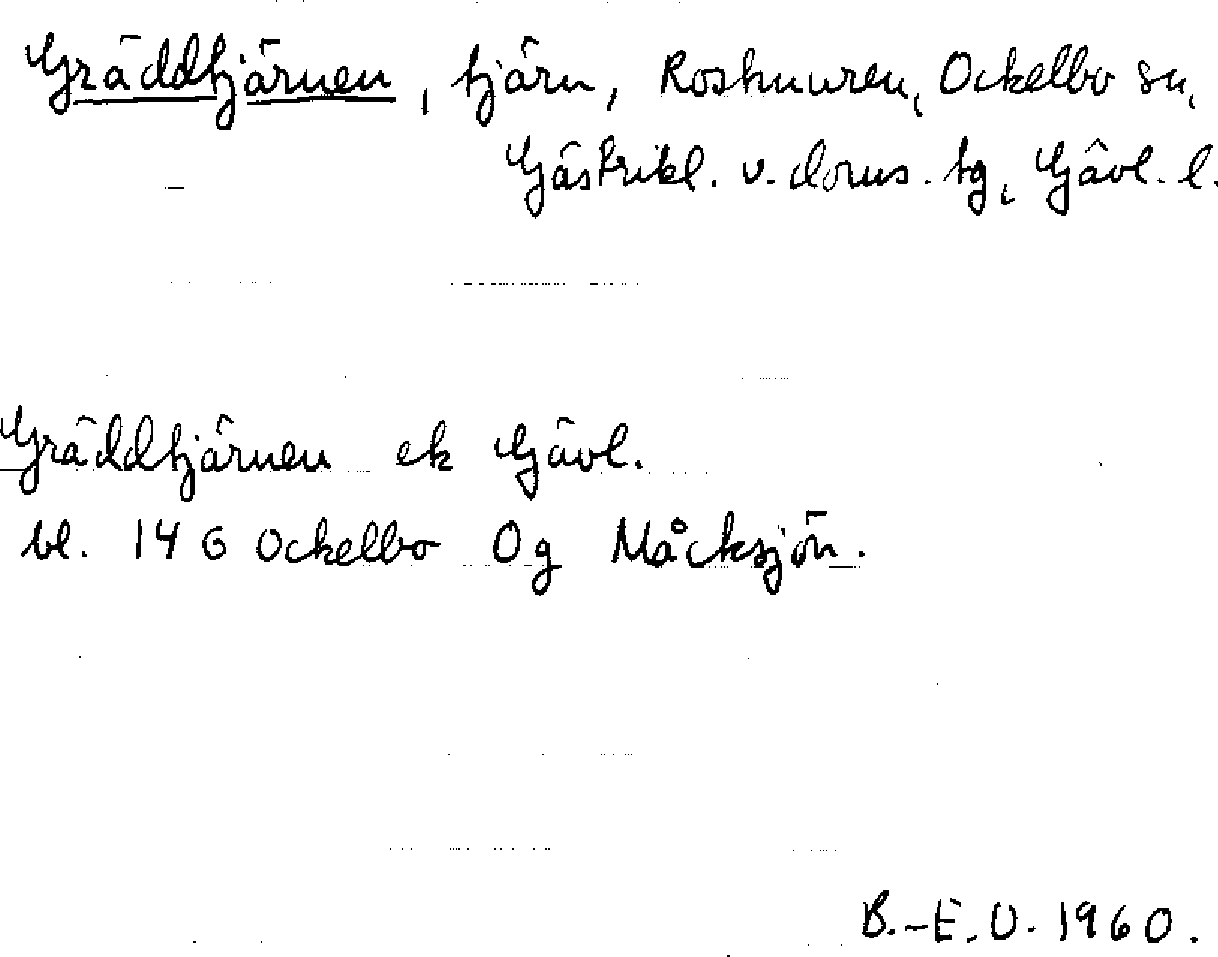 Gräddtjärnen, tjärn, Roshmuren, Ockelbo sn,
Gästrikl. v. doms. tg, Gävl. l.
Gräddtjärnen ek Gävl.
bl. 14 G Ockelbo 0g Måcksjön.
B.-E.O. 1960.